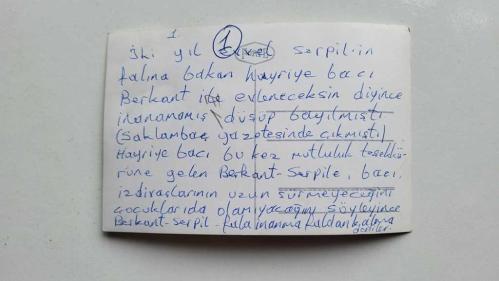 1
1
İki yıl evvel Serpil-in
falına bakan hayriye bacı
Berkant ile evleneceksin diyince
inanamamış düşüp bayılmıştı
(Saklambaç gazetesinde çıkmıştı)
Hayriye bacı bu kez mutluluk teşekkü-
rüne gelen Berkant-Serpile, bacı,
izdivaçlarının uzun sürmeyeceğini
çocuklarıda olamıyacağını söyleyince
Berkant-Serpil - fala inanma faldan kalma
dediler.